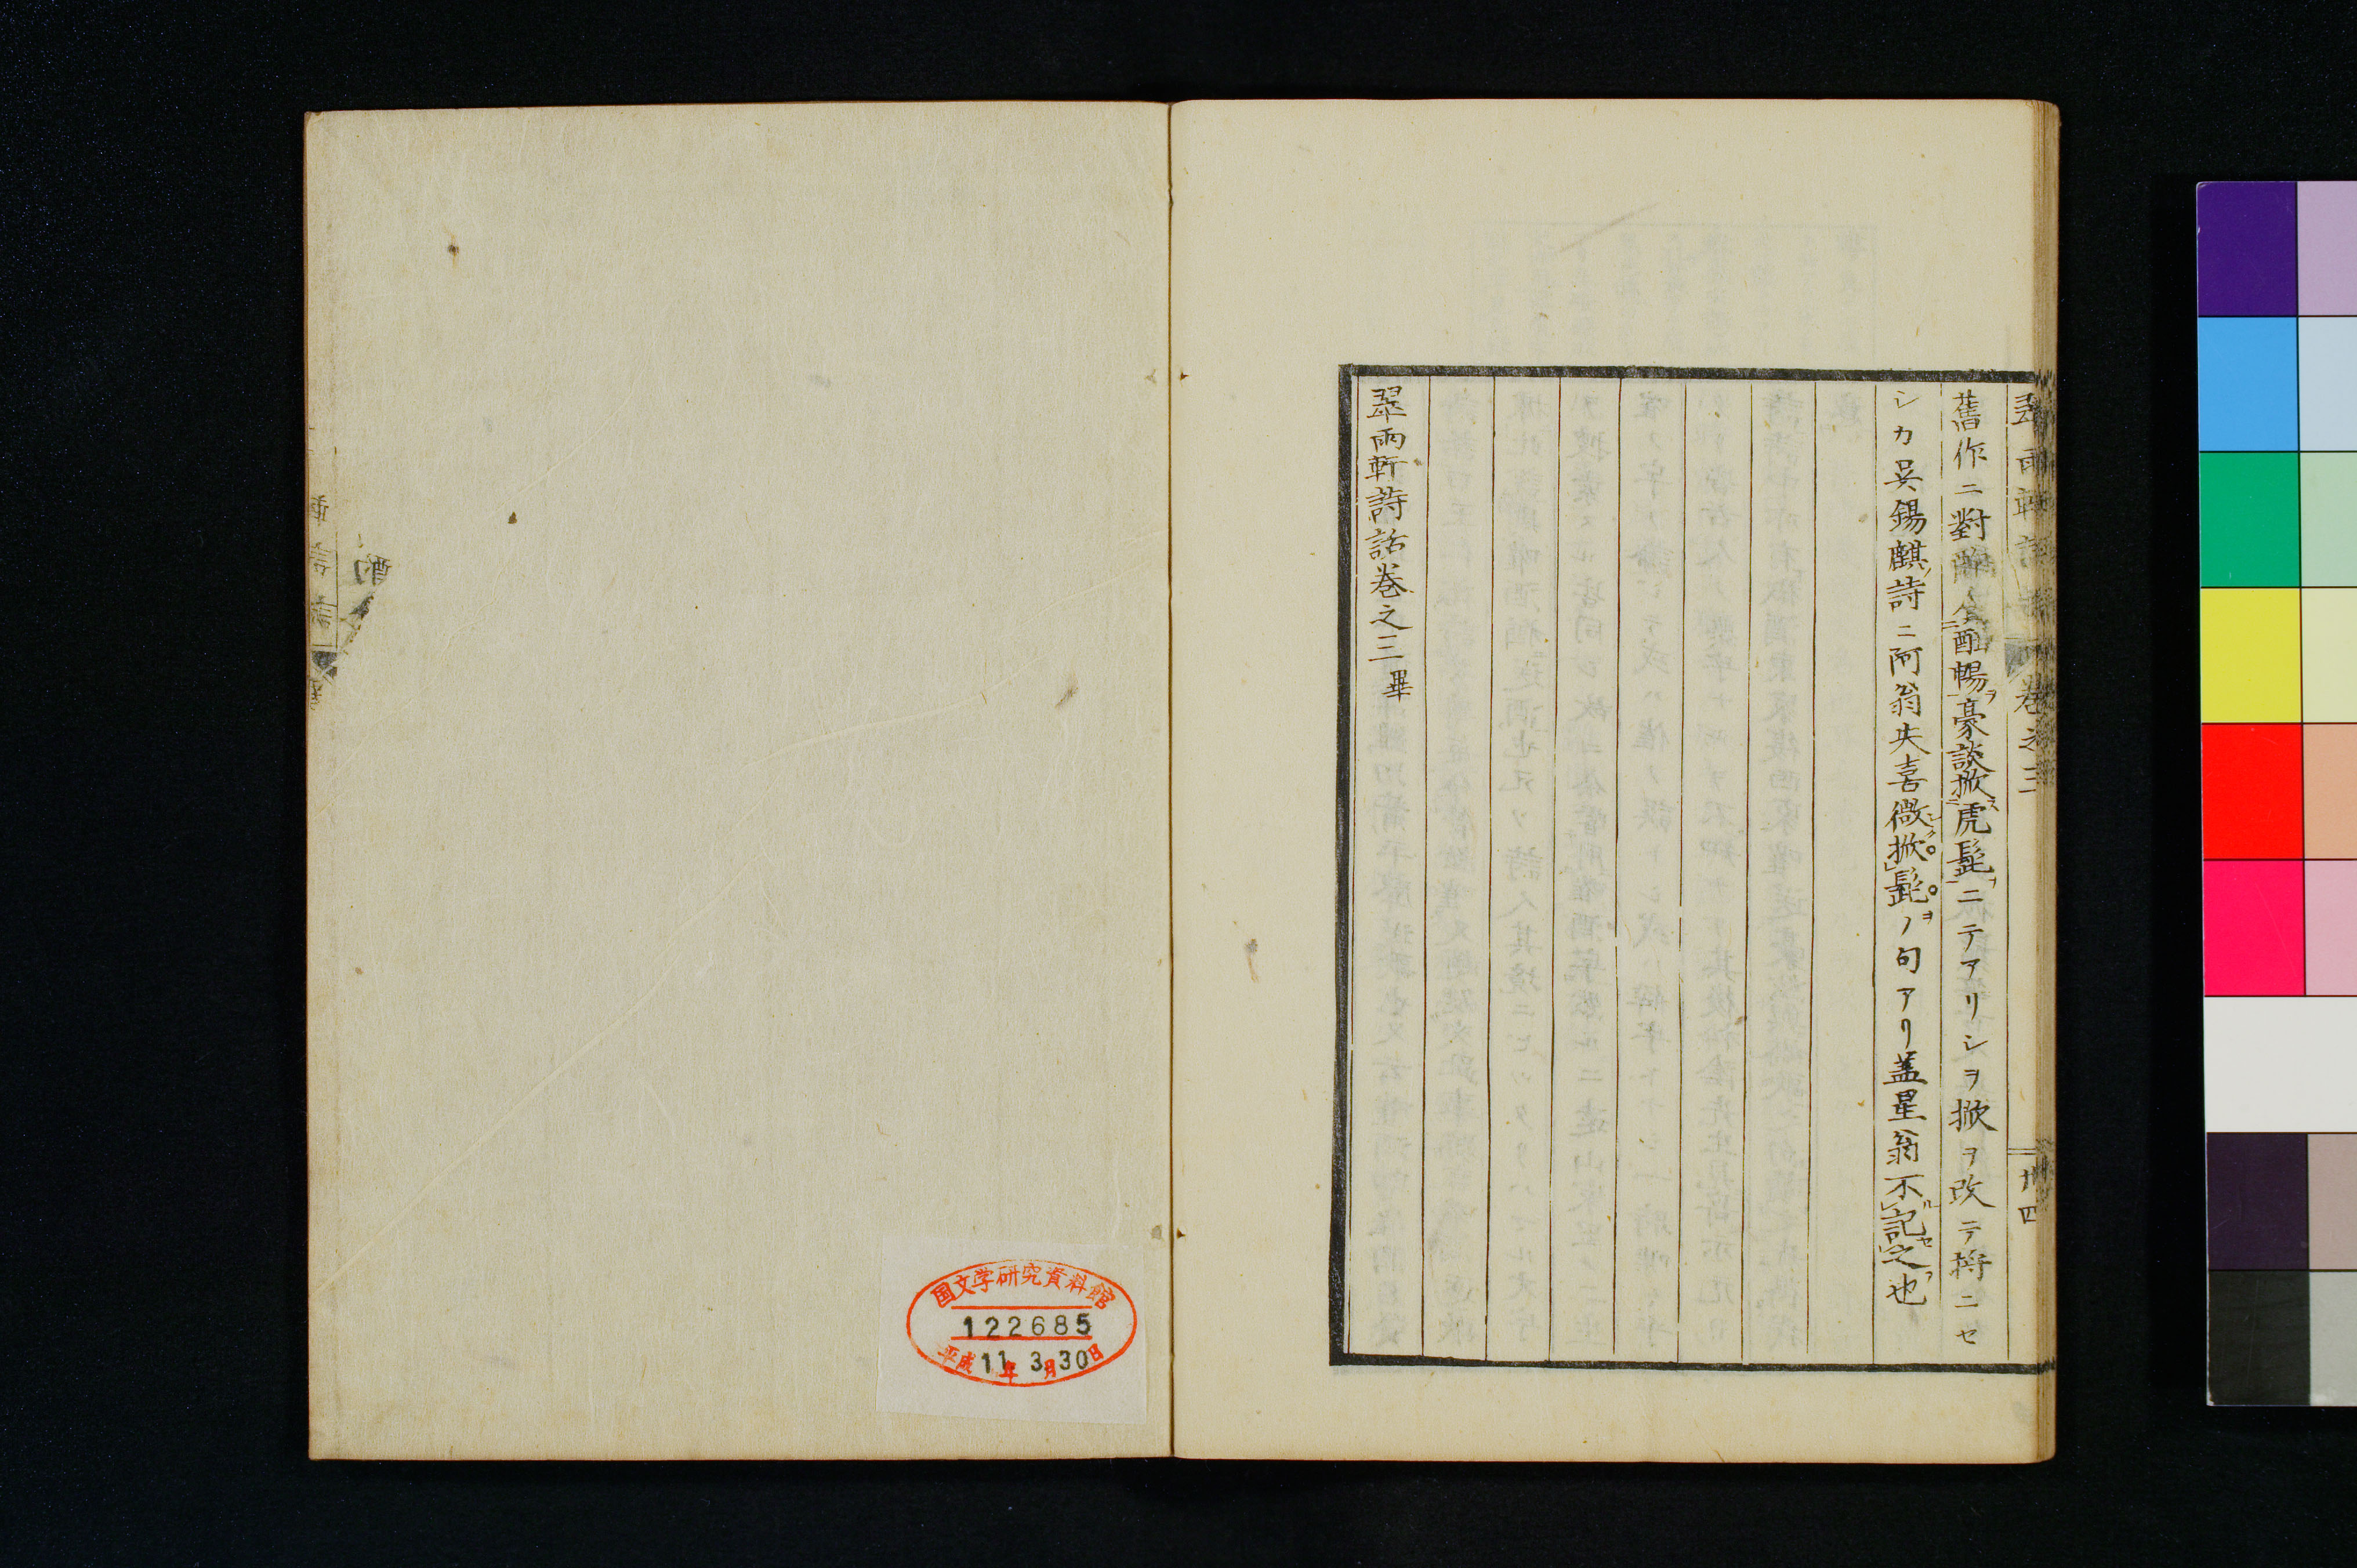 翠雨軒詩話 卷之三
廿四
舊作ニ對酔ノ會酣暢豪談掀虎髭ニテアリシヲ掀ヲ改テ捋ニセ
シカ呉錫麒詩ニ阿翁失喜微掀髭ノ句アリ蓋星翁不記之也
翠雨軒詩話卷之三畢
国文学研究資料館
122685
平成11年3月30日